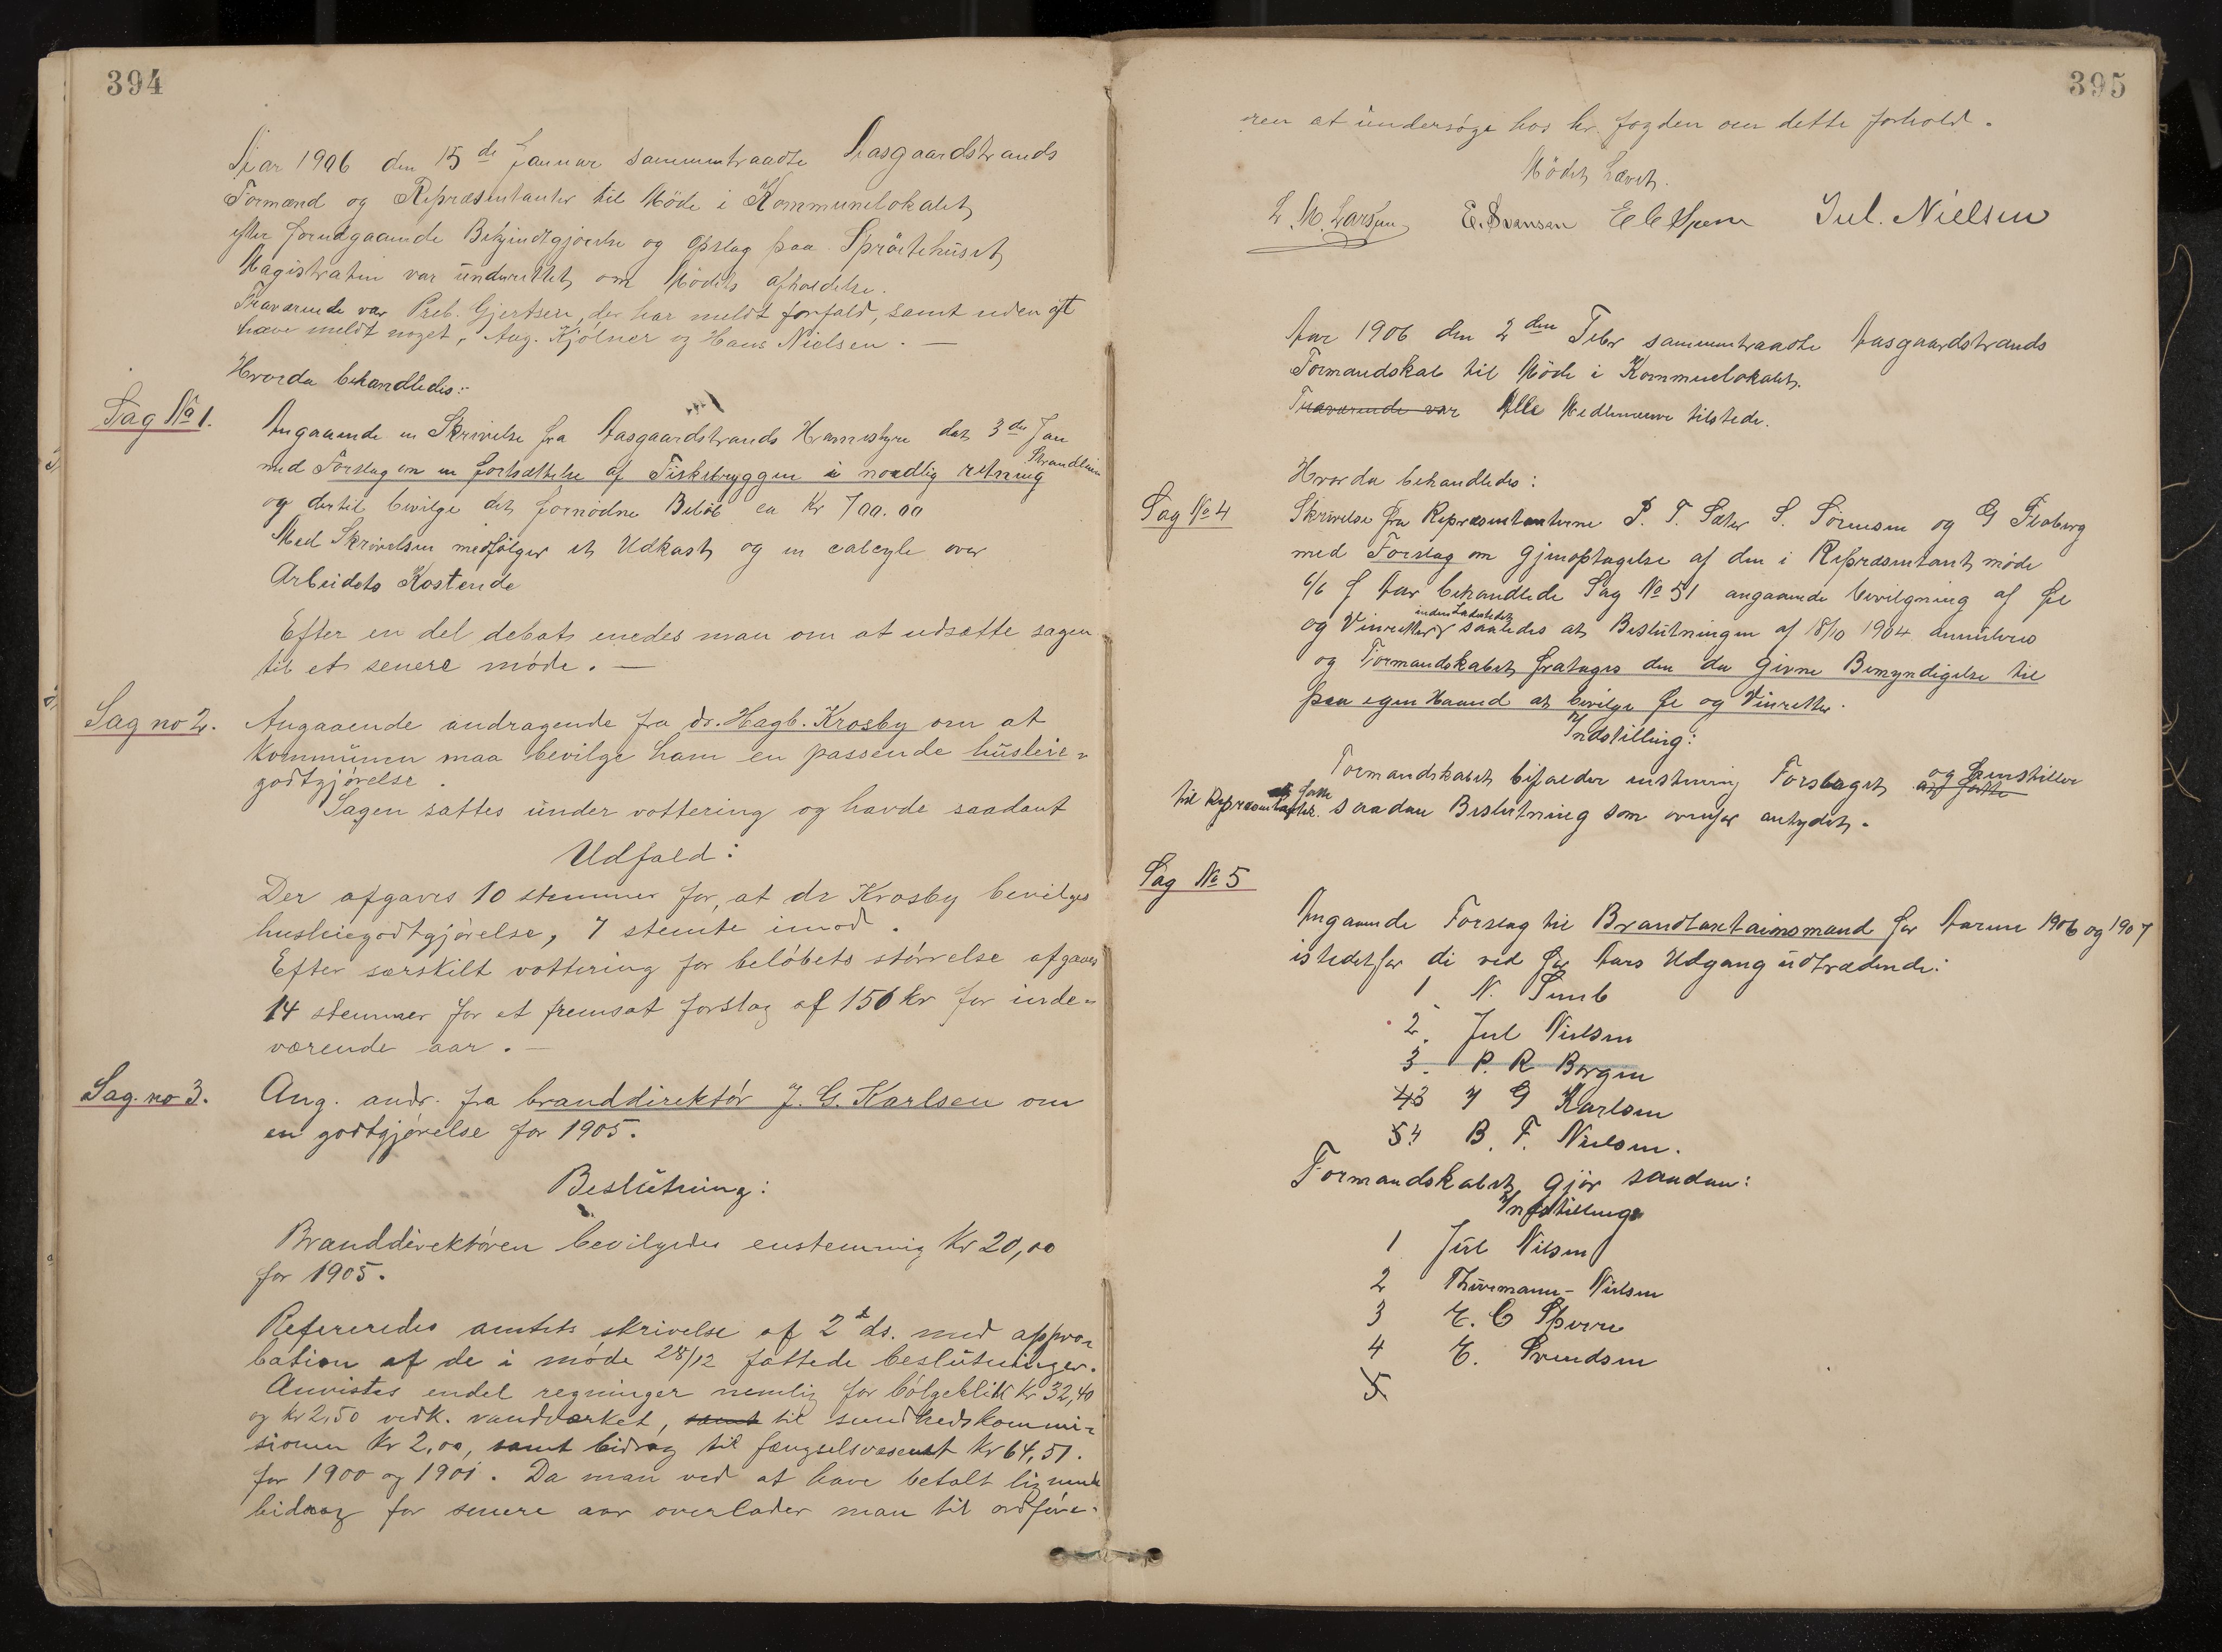 394
Aar 1906 den 15de Januar sammentraadte Aasgaardstrands
Formænd og Repræsentanter til Möde i Kommunelokalet
efter forudgaaende Bekjendtgjørelse og Opslag paa Spröitehuset
Magistraten var underrettet om Mödets afholdelse.
Fraværende var Preb. Gjertsen, der har meldt forfald, samt uden at
have meldt noget, Aug. Kjölner og Hans Nielsen. —
Hvorda behandledes:
Sag No 1.
Angaaende en Skrivelse fra Aasgaardstrands Havnestyre dat 3de Jan
med Forslag om en fortsættelse af Fiskebryggen i nordlig retning
og dertil bevilge det fornödne Belöb ca Kr 700.00
Med Skrivelsen medfölger et Udkast og en calcyle over
Arbeidets Kostende
Efter en del debat enedes man om at udsætte sagen
til et senere møde. —
Sag no 2.
Angaaende andragende fra dr. Hagb. Krosby om at
kommünen maa bevilge ham en passende hüsleie-
godtgjørelse.
Sagen sattes ünder vottering og havde saadant
Udfald:
Der afgaves 10 stemmer for, at dr Krosby bevilges
husleiegodtgjørelse, 7 stemte imod.
Efter særskilt vottering for beløbets størrelse afgaves
14 stemmer for et fremsat forslag af 150 kr for inde-
værende aar. —
Sag. no 3.
Ang. andr. fra branddirektør J. G. Karlsen om
en godtgjørelse for 1905.
Beslütning:
Branddirektøren bevilgedes enstemmig Kr 20,00
for 1905.
Refereredes amtets skrivelse af 2 ds. med appro-
bation af de i møde 28/12 fattede beslütninger.
Anvistes endel regninger nemlig for bølgeblik Kr 32,40
og kr 2,50 vedk. vandværket, samt til sundhedskommi-
sionen Kr 2,00, samt bidrag til fængselsvæsenet Kr 64,51.
for 1900 og 1901. Da man ved at have betalt lignende
bidrag for senere aar overlader man til ordføre-
395
ren at ündersøge hos hr. fogden om dette forhold.
Mödet hævet.
L. M. Larsen E. Svensen E C Spern Jul. Nielsen
Aar 1906 den 2den Febr sammentraadte Aasgaardstrands
Formandskab til Möde i Kommuelokalet.
Fraværende var Alle Medlemmerne tilstede.
Hvorda behandledes:
Sag No 4
Skrivelse fra Repræsentanterne P. T. Sæter S. Sörensen og G Floberg
med Forslag om gjenoptagelse af den i Repræsentant möde
6/6 f Aar behandlede Sag No 51 angaaende bevilgning af Øl
og Vinretter inden Ladestedet saaledes at Beslutningen af 18/10 1904 annuleres
og Formandskabet fratages den da givne Bemyndigelse til
paa egen Haand at bevilge Øl og Vinretter.
Indstilling:
Formandskabet bifalder enstemmig Forslaget og henstiller
til Repræsentanter at fatte saadan Beslutning som ovenfor antydet.
Sag No 5
Angaaende Forslag til Brandtaxtationsmænd for Aarene 1906 og 1907
istedetfor di ved før Aars Udgang udtrædende:
1 N. Sunb
2. Jul Nielsen
3. P. R Borgen
43 J G Karlsen
54 B. F. Nielsen.
Formandskabet gjör saadan:
Indstilling
1 Jul Nilsen
2 Thurmann-Nielsen
3 E. C Sperre
4 E. Svendsen
5